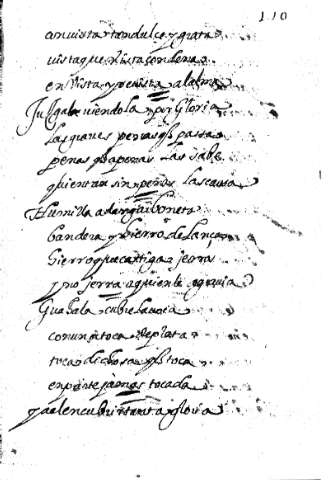 110
con vista tan dulce y grata
vista que vista condena
en vista y revista al alma
Juzgala viendola por gloria
las graves penas q̃ passa
penas q̃ a penas las sabe
quien tan sin penas las causa
Humilla a
bandera y hierro de lança
hierro que castiga
y no jerra a quien le agravia
cubre
con una toca de plata
toca dichosa q̃ toca
en parte jamas tocada
y al encubrir tanta gloria